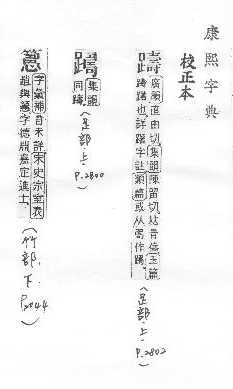 康熙字典
校正本
躊 廣韻直由切集韻陳留切𠀤音儔玉篇
躊躇也詳躇字註類篇或从𠷎作𨄔
(足部.上.
P.2802)
集韻
同躊
(足部.上.
P.2800
字彙補音未詳宋史宗室表
趙與𥳑字德鼎嘉定進士
(竹部.下.